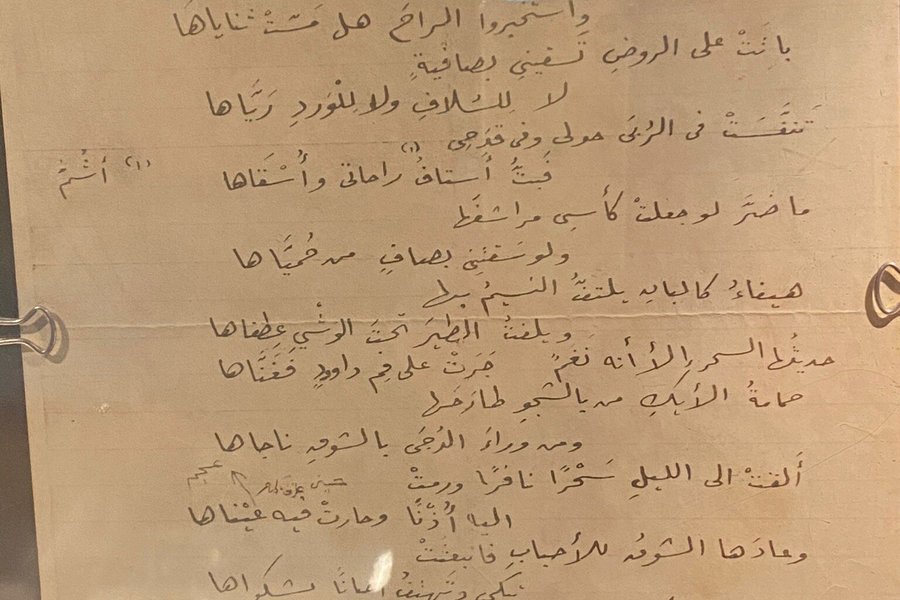 واستخبروا الراحَ هل مَسَّتْ ثناياهَا
باتَتْ على الروضِ تَسقيني بصافيةٍ
لا لِلسُلافِ ولا لِلْوَردِ رَيَّاها
تَنَفَّسَتْ فى الرُبَى حولى وفى قدَحِى (١)
فَبتُّ أستافُ راحاتى وأُسْقَاها
(١) أشُمُّ
ما ضَرَّ لو جعلتْ كأسِى مراشفَها
ولو سَقتْنِى بصافٍ من حُميَّاها
هيفاءُ كالبانِ يلتفُّ النسيمُ بها
ويلفتُ الطيرَ تحتَ الوشْىِ عِطفاها
حديثُها السحر إلا أنه نَغَمٌ
جَرَتْ على فمِ داودٍ فَغَنَّاها
حمامةُ الأيكِ من بالشجوِ طارَحَها
ومن وراءَ الدُجَى بالشوقِ ناجاها
أَلقتْ الى الليلِ سَحْرًا نافرًا ورمتْ
اليه أُذْنًا وحارتْ فيه عيْناها
وعادَها الشوقُ للأحبابِ فانبعثَتْ
تبكى وتهتفُ أحيانًا بشكواها